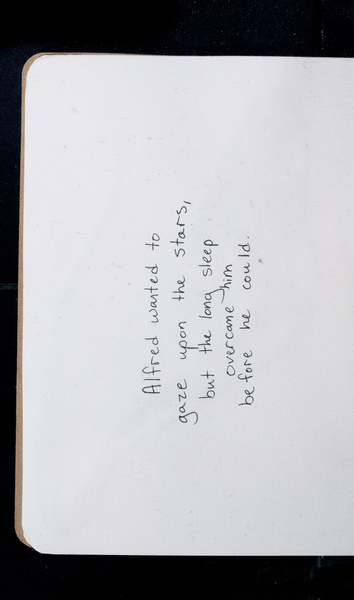 Alfred wanted to
gaze upon the stars,
but the long sleep
overcame him
before he could.